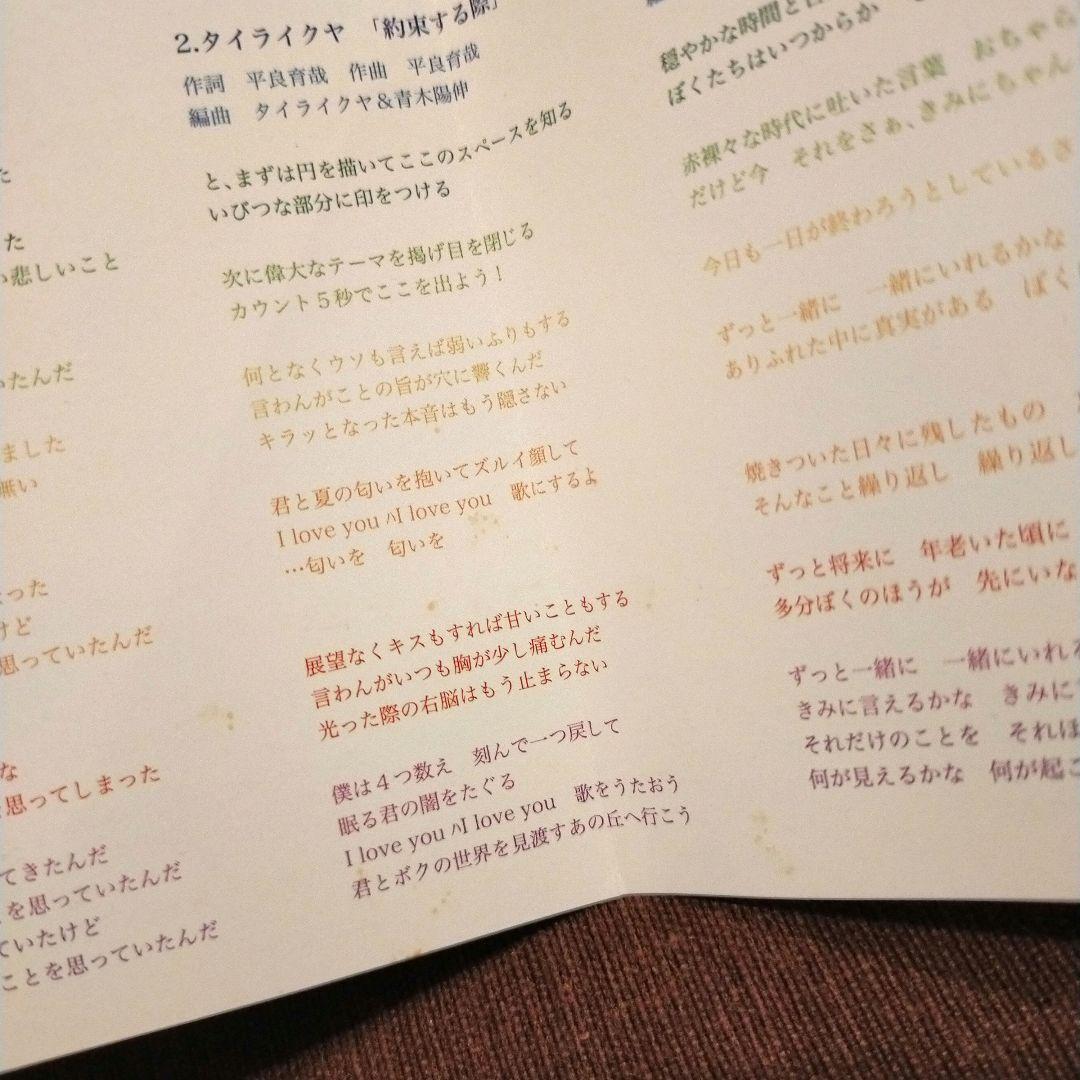 た
た
い悲しいこと
いたんだ
ました
無い
まった
けど
思っていたんだ
な
を思ってしまった
てきたんだ
とを思っていたんだ
ていたけど
ことを思っていたんだ
2.タイライクヤ 「約束する際」
作詞 平良育哉 作曲 平良育哉
編曲 タイライクヤ＆青木陽伸
と、まずは円を描いてここのスペースを知る
いびつな部分に印をつける
次に偉大なテーマを掲げ目を閉じる
カウント５秒でここを出よう！
何となくウソも言えば弱いふりもする
言わんがことの旨が穴に響くんだ
キラッとなった本音はもう隠さない
君と夏の匂いを抱いてズルイ顔して
I love you ﾊI love you 歌にするよ
…匂いを 匂いを
展望なくキスもすれば甘いこともする
言わんがいつも胸が少し痛むんだ
光った際の右脳はもう止まらない
僕は４つ数え 刻んで一つ戻して
眠る君の闇をたぐる
I love you ﾊI love you 歌をうたおう
君とボクの世界を見渡すあの丘へ行こう
穏やかな時間と
ぼくたちはいつからか
赤裸々な時代に吐いた言葉 おちゃら
だけど今 それをさぁ、きみにちゃん
今日も一日が終わろうとしているさ
ずっと一緒に 一緒にいれるかな
ありふれた中に真実がある ぼく
焼きついた日々に残したもの
そんなこと繰り返し 繰り返し
ずっと将来に 年老いた頃に
多分ぼくのほうが 先にいな
ずっと一緒に 一緒にいれる
きみに言えるかな きみに
それだけのことを それは
何が見えるかな 何が起こ